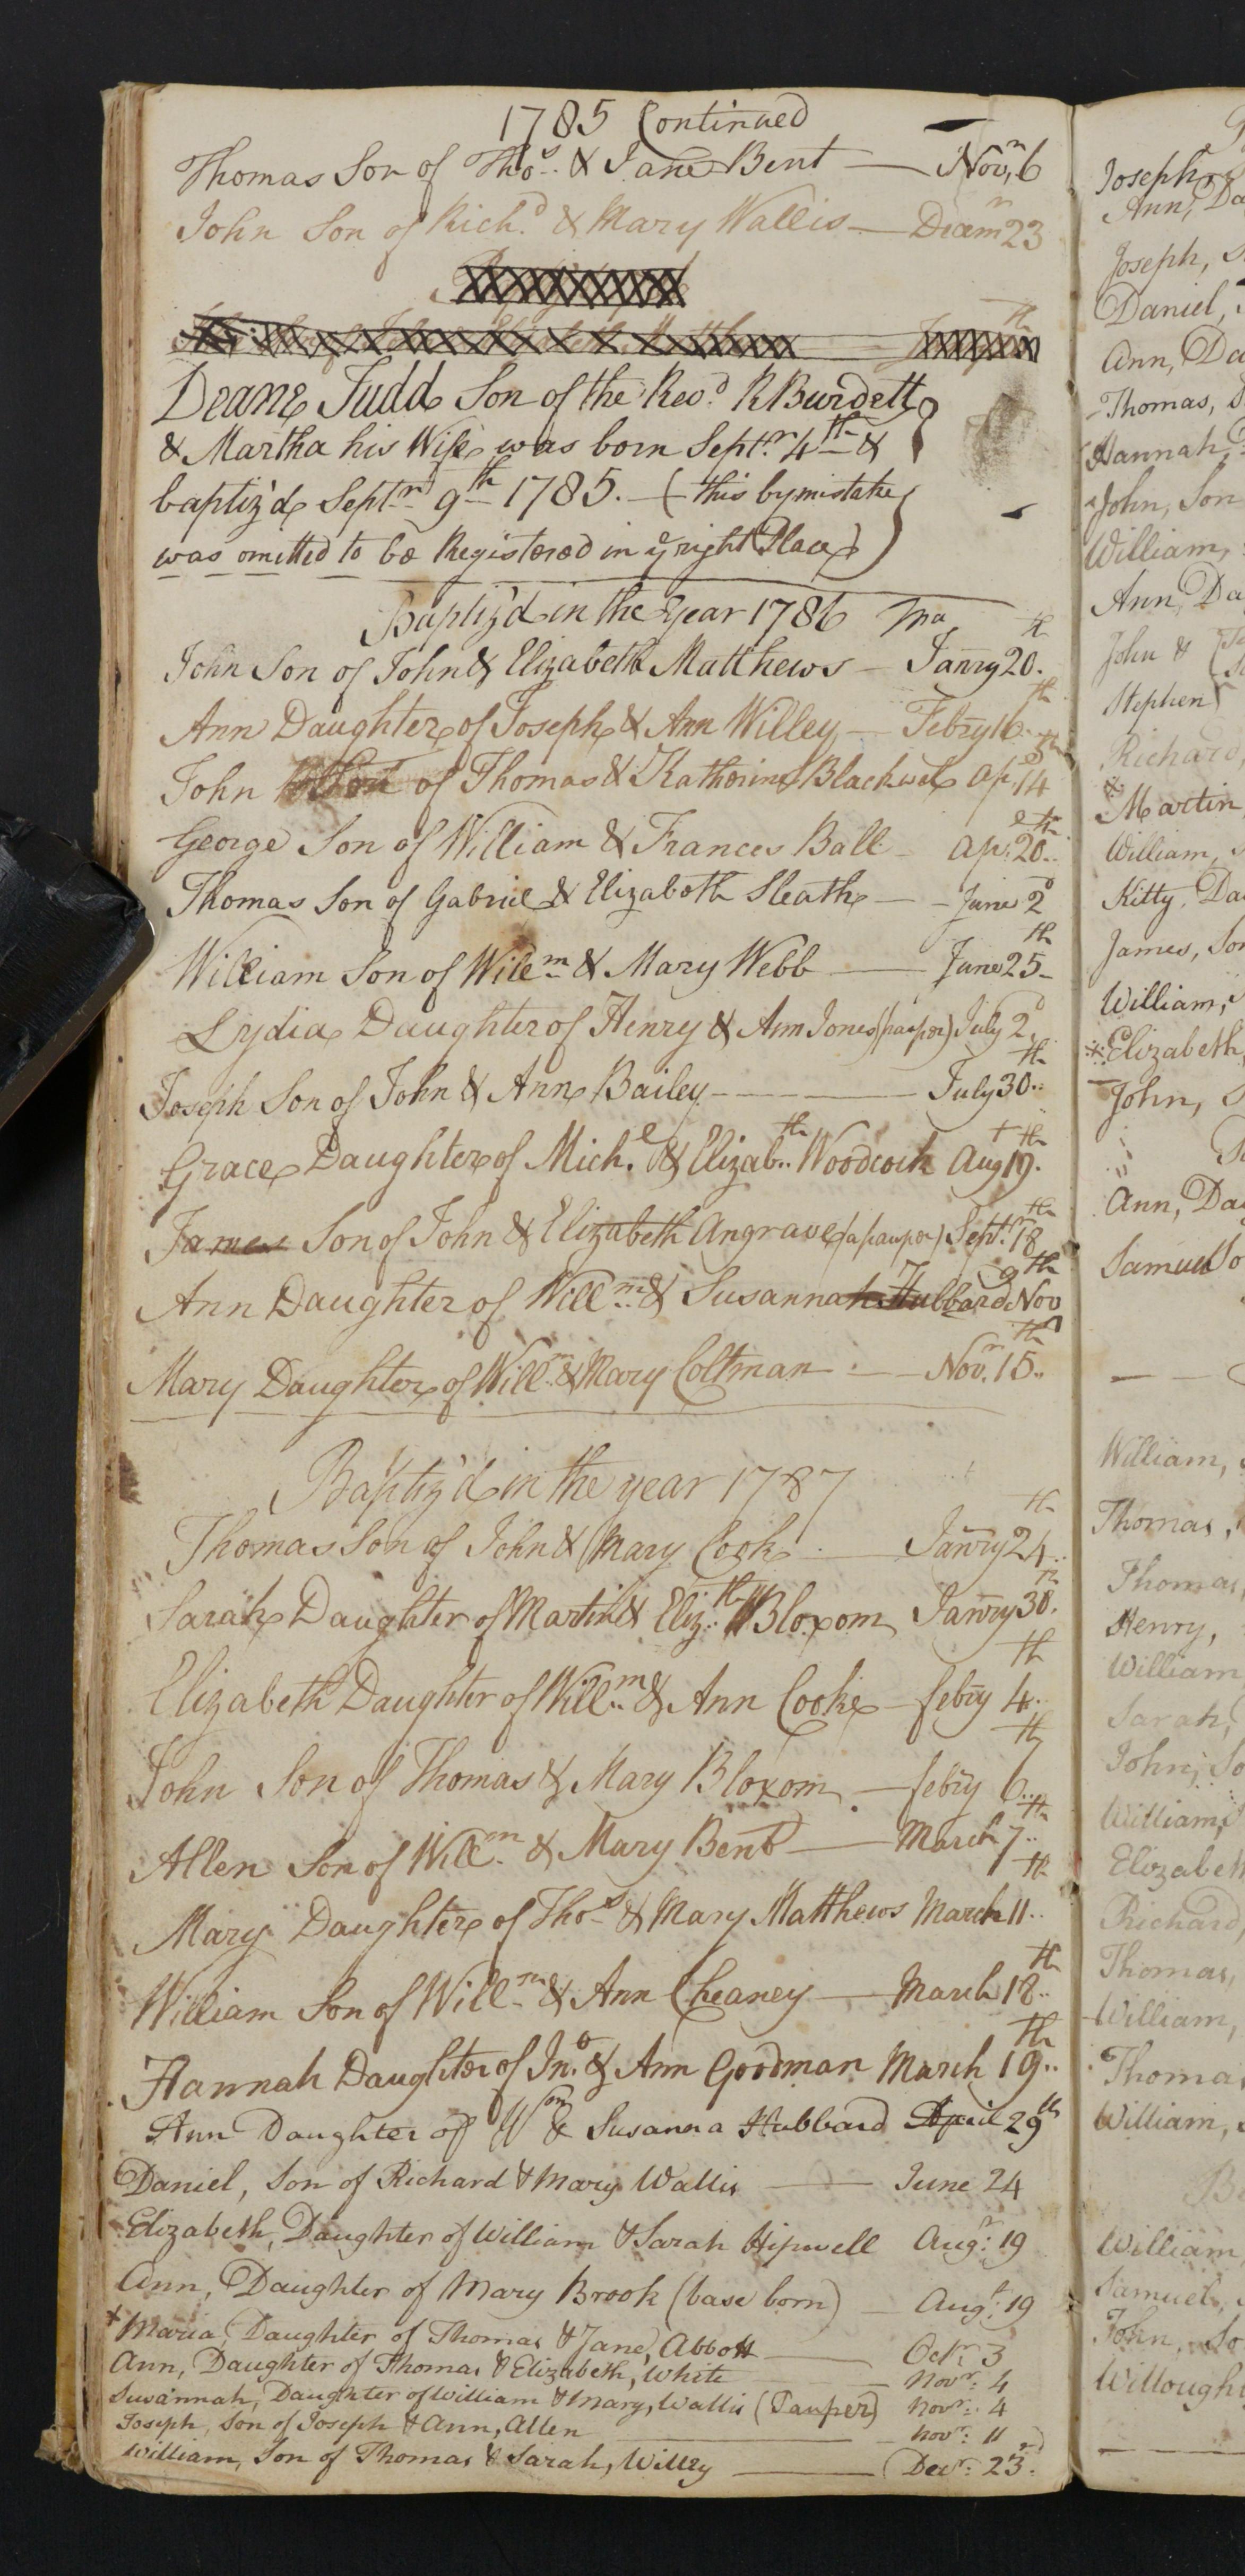 1785 Continued
Thomas Son of Thos. & Jane Bent — Novr. 6
John Son of Richd. & Mary Wallis — Decem 23
Deane Judd Son of the Revd. R Burdett
& Martha his Wife was born Septr. 4th &
baptiz'd Septr. 9th 1785. — (this by mistake
was omitted to be Registered in ye right Place)
Baptiz'd in the Year 1786
John Son of John & Elizabeth Matthews — Janry 20th.
Ann Daughter of Joseph & Ann Willey — Febry 16th
John of Thomas & Katherine Blackwel Apl 14th
George Son of William & Frances Ball — Apl 20th
Thomas Son of Gabriel & Elizabeth Sleath — June 2d
William Son of Willm & Mary Webb — June 25th
Lydia Daughter of Henry & Ann Jones (pauper) July 2d
Joseph Son of John & Ann Bailey — July 30th
Grace Daughter of Michl. & Elizabth Woodcock Augt
James Son of John & Elizabeth Angrave (a pauper) Septr. 18th
Ann Daughter of Willm & Susannah Hubbard Nov 9th
Mary Daughter of Willm & Mary Coltman — Novr. 15th
Baptiz'd in the year 1787
Thomas Son of John & Mary Cook — Janry 24th
Sarah Daughter of Martin & Elizth Bloxom Janry 30th
Elizabeth Daughter of Willm & Ann Cooke — febry 4th
John Son of Thomas & Mary Bloxom — febry 6th
Allen Son of Willm & Mary Bent — March 7th
Mary Daughter of Thos & Mary Matthews March 11th
William Son of Willm & Ann Cheaney — March 18th
Hannah Daughter of Jno. & Ann Goodman March 19th
Ann Daughter of Wm & Susanna Hubbard April 29th
Daniel, Son of Richard & Mary Wallis — June 24
Elizabeth, Daughter of William & Sarah Hipwell Augt: 19
Ann, Daughter of Mary Brook (base born) — Augt: 19
+ Maria, Daughter of Thomas & Jane, Abbott — Octr: 3
Ann, Daughter of Thomas & Elizabeth, White — Novr: 4
Susannah, Daughter of William & Mary, Wallis (Pauper) Novr: 4
Joseph, Son of Joseph & Ann, Allen — Novr: 11
William, Son of Thomas & Sarah, Willey — Decr: 23d
Joseph,
Ann, Da
Joseph, S
Daniel,
Ann, Da
Thomas, S
Hannah,
John, Son
William,
Ann, Da
John &
Stephen
Richard,
Martin
William, S
Kitty, Da
James, Son
William, S
Elizabeth,
John, S
Ann, Da
Samuel So
William,
Thomas,
Thomas,
Henry,
William
Sarah,
John, So
William, S
Elizabeth
Richard,
Thomas,
William,
Thomas
William,
William
Samuel,
John, So
Willough